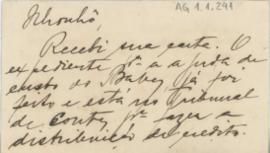 AG 1.1.241
Nhonhô,
Recebi sua carta. O
expediente pª a ajuda de
custo do Baby, já foi
feito e está no Tribunal
de Contas pª fazer a
distribuição de credito.